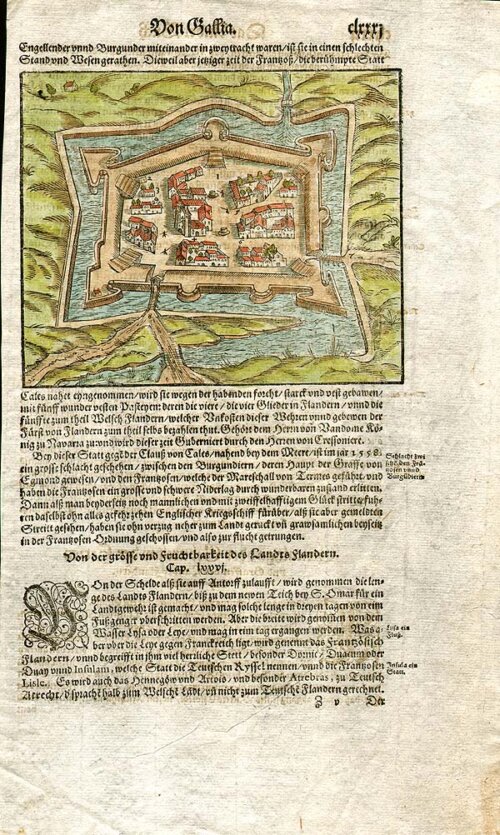 Von Gallia. clxxxj
Engellender vnnd Burgunder miteinander in zweytracht waren/ist sie in einen schlechten
Stand vnd Wesen gerathen. Dieweil aber jetziger zeit der Frantzoß/die berühmpte Statt
Cales nahet eyngenommen/wird sie wegen der habenden forcht/starck vnd vest gebawen/
mit fünff wunder vesten Pasteyem deren die viere/die vier Glieder in Flandern/vnnd die
fünffte zum theil Welsch Flandern/welcher Vnkosten dieser Wehren vnnd gebewen der
Fürst von Flandern zum theil selbs bezahlen thut. Gehört dem Herrn von Vandome Kö-
nig zu Navarra zu vnd wird dieser zeit Guberniert durch den Herren von Cressoniere.
Bey dieser Statt gegt der Clauß von Cales/nahend bey dem Meere/ist im jar 1558.
ein grosse schlacht geschehen/zwischen den Burgundiern/deren Haupt der Graffe von
Egmond gewesen/vnd den Frantzosen/welche der Marschall von Termes geführt/vnd
haben die Frantzosen ein grosse vnd schwere Niderlag durch wunderbaren zustand erlitten.
Dann alß man beyderseits noch mannlichen vnd mit zweiffelhafftigem Glück stritte/fuhr-
en daselbst ohn alles gefehr zehen Englischer Kriegsschiff fürüber/alß sie aber gemeldten
Streitt gesehen/haben sie ohn verzug neher zum Landt geruckt vñ grawsamlichen beyseitz
in der Frantzosen Ordnung geschossen/vnd also zur flucht getrungen.
Schlacht zwischen den Frãtzosen vnnd Burgundiern
Von der grösse vnd Fruchtbarkeit des Landts Flandern.
Cap. lxxvj.
VOn der Schelde alß sie auff Antorff zulaufft/wird genommen die len-
ge des Landts Flandern/biß zu dem newen Teich bey S. Omar für ein
Landtgewehr ist gemacht/vnd mag solche lenge in dreyen tagen von eim
Fußgenger vberschritten werden. Aber die breite wird gewissen von dem
Wasser Lysa oder Leye/vnd mag in eim tag ergangen werden. Was a-
ber vber die Leye gegen Franckreich ligt, wird genennt das Frantzösisch
Flandern/vnnd begreifft in jhm viel herzlicher Stett/besonder Dornic/Duacum oder
Duay vnnd Insulam, welche Statt die Teutschen Ryssel nennen/vnnd die Frantzosen
Lisle. Es wird auch das Hennegöw vnd Artois/vnd besonder Atrebras, zu Teutsch
Atrecht/d spracht halb zum Welschẽ Lãdt/vñ nicht zum Teutschẽ Flandern gerechnet.
Lysa ein Fluß.
Insula ein Statt.
Z v Der